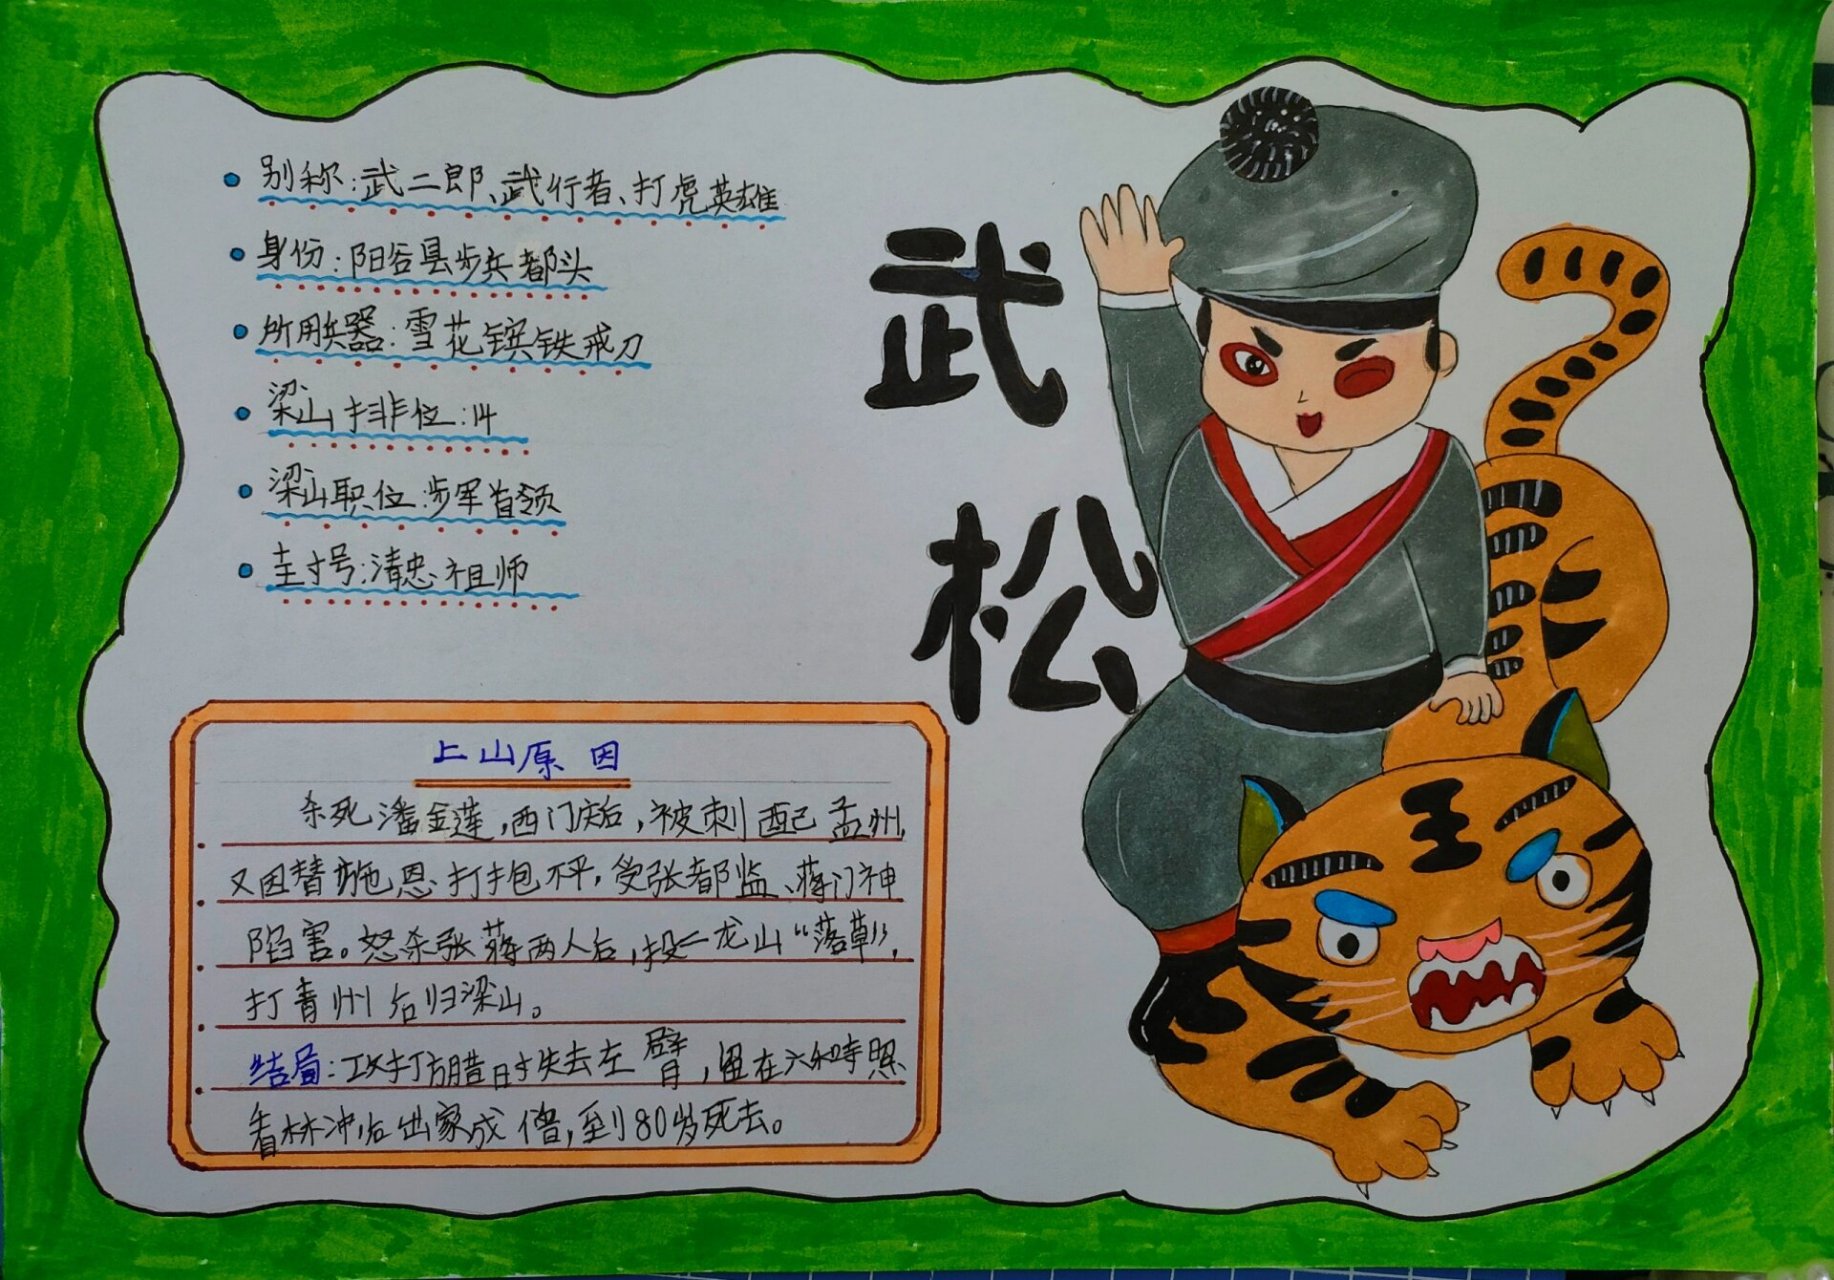 别称:武二郎、武行者、打虎英雄
身份:阳谷县步兵都头
所用兵器:雪花镔铁戒刀
梁山排位:14
梁山职位:步军首领
封号:清忠祖师
武松
上山原因
杀死潘金莲,西门庆后,被刺配孟州,
又因替施恩打抱不平,受张都监、蒋门神
陷害。怒杀张蒋两人后,投二龙山“落草”,
打青州后归梁山。
结局:攻打方腊时失去左臂,留在六和寺照
看林冲,后出家成僧,到80岁死去。
王